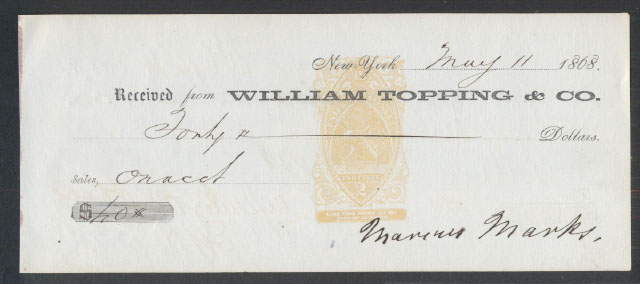 New-York May 11 1868.
Received from WILLIAM TOPPING & CO.
Forty Dollars.
Sales, on acct
$40
TWO CENTS
Marcus Marks.